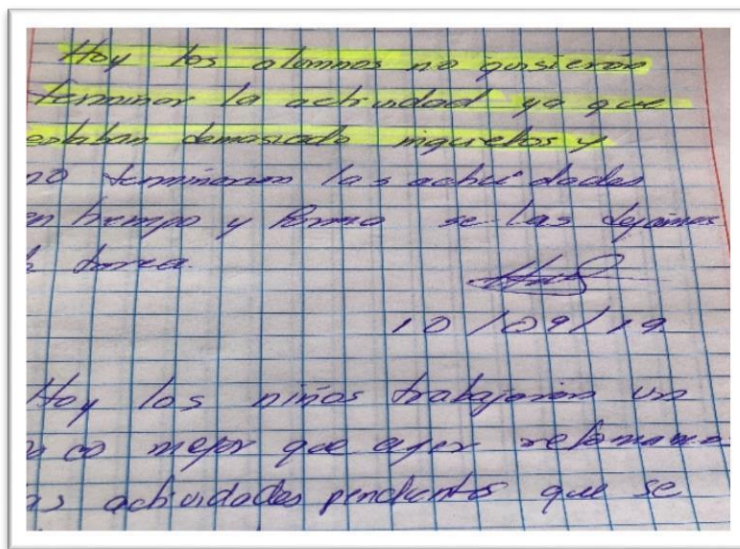 Hoy los alumnos no quisieron
terminar la actividad ya que
estaban demasiado inquietos y
no terminaron las actividades
en tiempo y forma se las dejamos
tarea.
10/09/19
Hoy los niños trabajaron un
poco mejor que ayer retomaron
as actividades pendientes que se